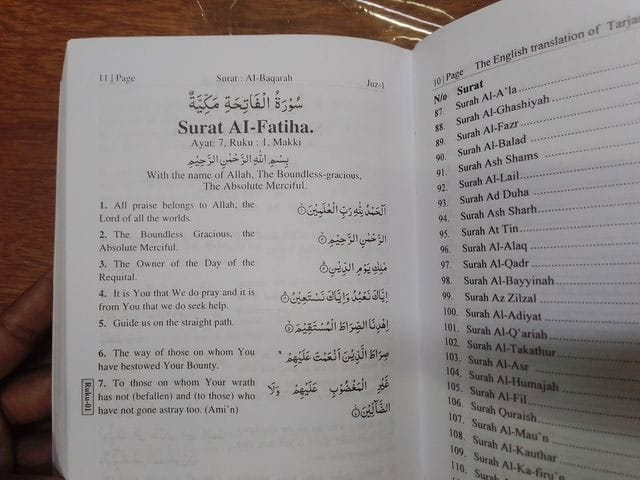 11 | Page Surat : Al-Baqarah Juz-1
سُوْرَةُ الْفَاتِحَةِ مَكِّيَّةٌ
Surat AI-Fatiha.
Ayat: 7, Ruku : 1, Makki
بِسْمِ اللهِ الرَّحْمٰنِ الرَّحِيْمِ
With the name of Allah, The Boundless-gracious,
The Absolute Merciful.
1. All praise belongs to Allah, the
Lord of all the worlds.
اَلْحَمْدُ لِلّٰهِ رَبِّ الْعٰلَمِيْنَ ۝١
2. The Boundless Gracious, the
Absolute Merciful.
الرَّحْمٰنِ الرَّحِيْمِ ۝٢
3. The Owner of the Day of the
Requital.
مٰلِكِ يَوْمِ الدِّيْنِ ۝٣
4. It is You that We do pray and it is
from You that we do seek help.
اِيَّاكَ نَعْبُدُ وَاِيَّاكَ نَسْتَعِيْنُ ۝٤
5. Guide us on the straight path.
اِهْدِنَا الصِّرَاطَ الْمُسْتَقِيْمَ ۝٥
6. The way of those on whom You
have bestowed Your Bounty.
صِرَاطَ الَّذِيْنَ اَنْعَمْتَ عَلَيْهِمْ
7. To those on whom Your wrath
has not (befallen) and (to those) who
have not gone astray too. (Ami'n)
غَيْرِ الْمَغْضُوْبِ عَلَيْهِمْ وَلَا
الضَّآلِّيْنَ ۝٧
Ruku-01
10 | Page The English translation of Tarja
N/o Surat
87. Surah Al-A'la
88. Surah Al-Ghashiyah
89. Surah Al-Fazr
90. Surah Al-Balad
91. Surah Ash Shams
92. Surah Al-Lail
93. Surah Ad Duha
94. Surah Ash Sharh
95. Surah At Tin
96. Surah Al-Alaq
97. Surah Al-Qadr
98. Surah Al-Bayyinah
99. Surah Az Zilzal
100. Surah Al-Adiyat
101. Surah Al-Q'ariah
102. Surah Al-Takathur
103. Surah Al-Asr
104. Surah Al-Humajah
105. Surah Al-Fil
106. Surah Quraish
107. Surah Al-Mau'n
108. Surah Al-Kauthar
109. Surah Al-Ka-firu'n
110.